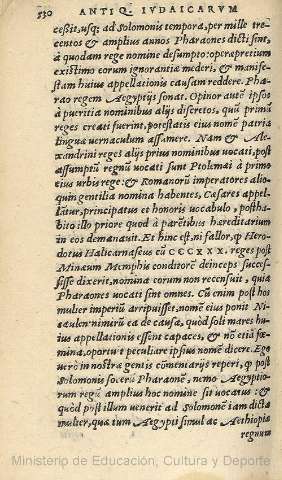 530 ANTIQ. IVDAICARVM
cessit, usq; ad Solomonis tempora, per mille tre-
centos & amplius annos Pharaones dicti sint,
à quodam rege nomine desumpto: operæpretium
existimo eorum ignorantiæ mederi, & manife-
stam huius appellationis causam reddere. Pha-
rao regem Aegyptijs sonat. Opinor autē ipsos
à pueritia nominibus alijs discretos, quū primū
reges creati fuerint, potestatis eius nomē patria
lingua uernaculum assumere. Nam & Ale-
xandrini reges alijs prius nominibus uocati, post
assumptū regnū uocati sunt Ptolemæi à primo
eius urbis rege: & Romanorū imperatores alio-
quin gentilia nomina habentes, Cæsares appel-
lātur, principatus et honoris uocabulo, posthā-
bito illo priore quod à parētibus hæreditarium
in eos demanauit. Et hinc est, ni fallor, qp Hero-
dotus Halicarnaseus cū CCCXXX. reges post
Minæum Memphis conditorē deinceps succes-
sisse dixerit, nomina eorum non recensuit, quia
Pharaones uocati sint omnes. Cū enim post hos
mulier imperiū arripuisset, nomē eius ponit Ni
caulen: nimirū ea de causa, quòd soli mares hu-
ius appellationis essent capaces, & nō etiā fœ-
mina, oportuit peculiare ipsius nomē dicere. Ego
uerò in nostræ gentis cōmentarijs reperi, qp post
Solomonis socerū Pharaonē, nemo Aegyptio-
rum regū amplius hoc nomine sit uocatus: &
quòd post illum uenerit ad Solomonē iam dicta
mulier, quæ tum Aegypti simul ac Aethiopiæ
regnum
Ministerio de Educación, Cultura y Deporte